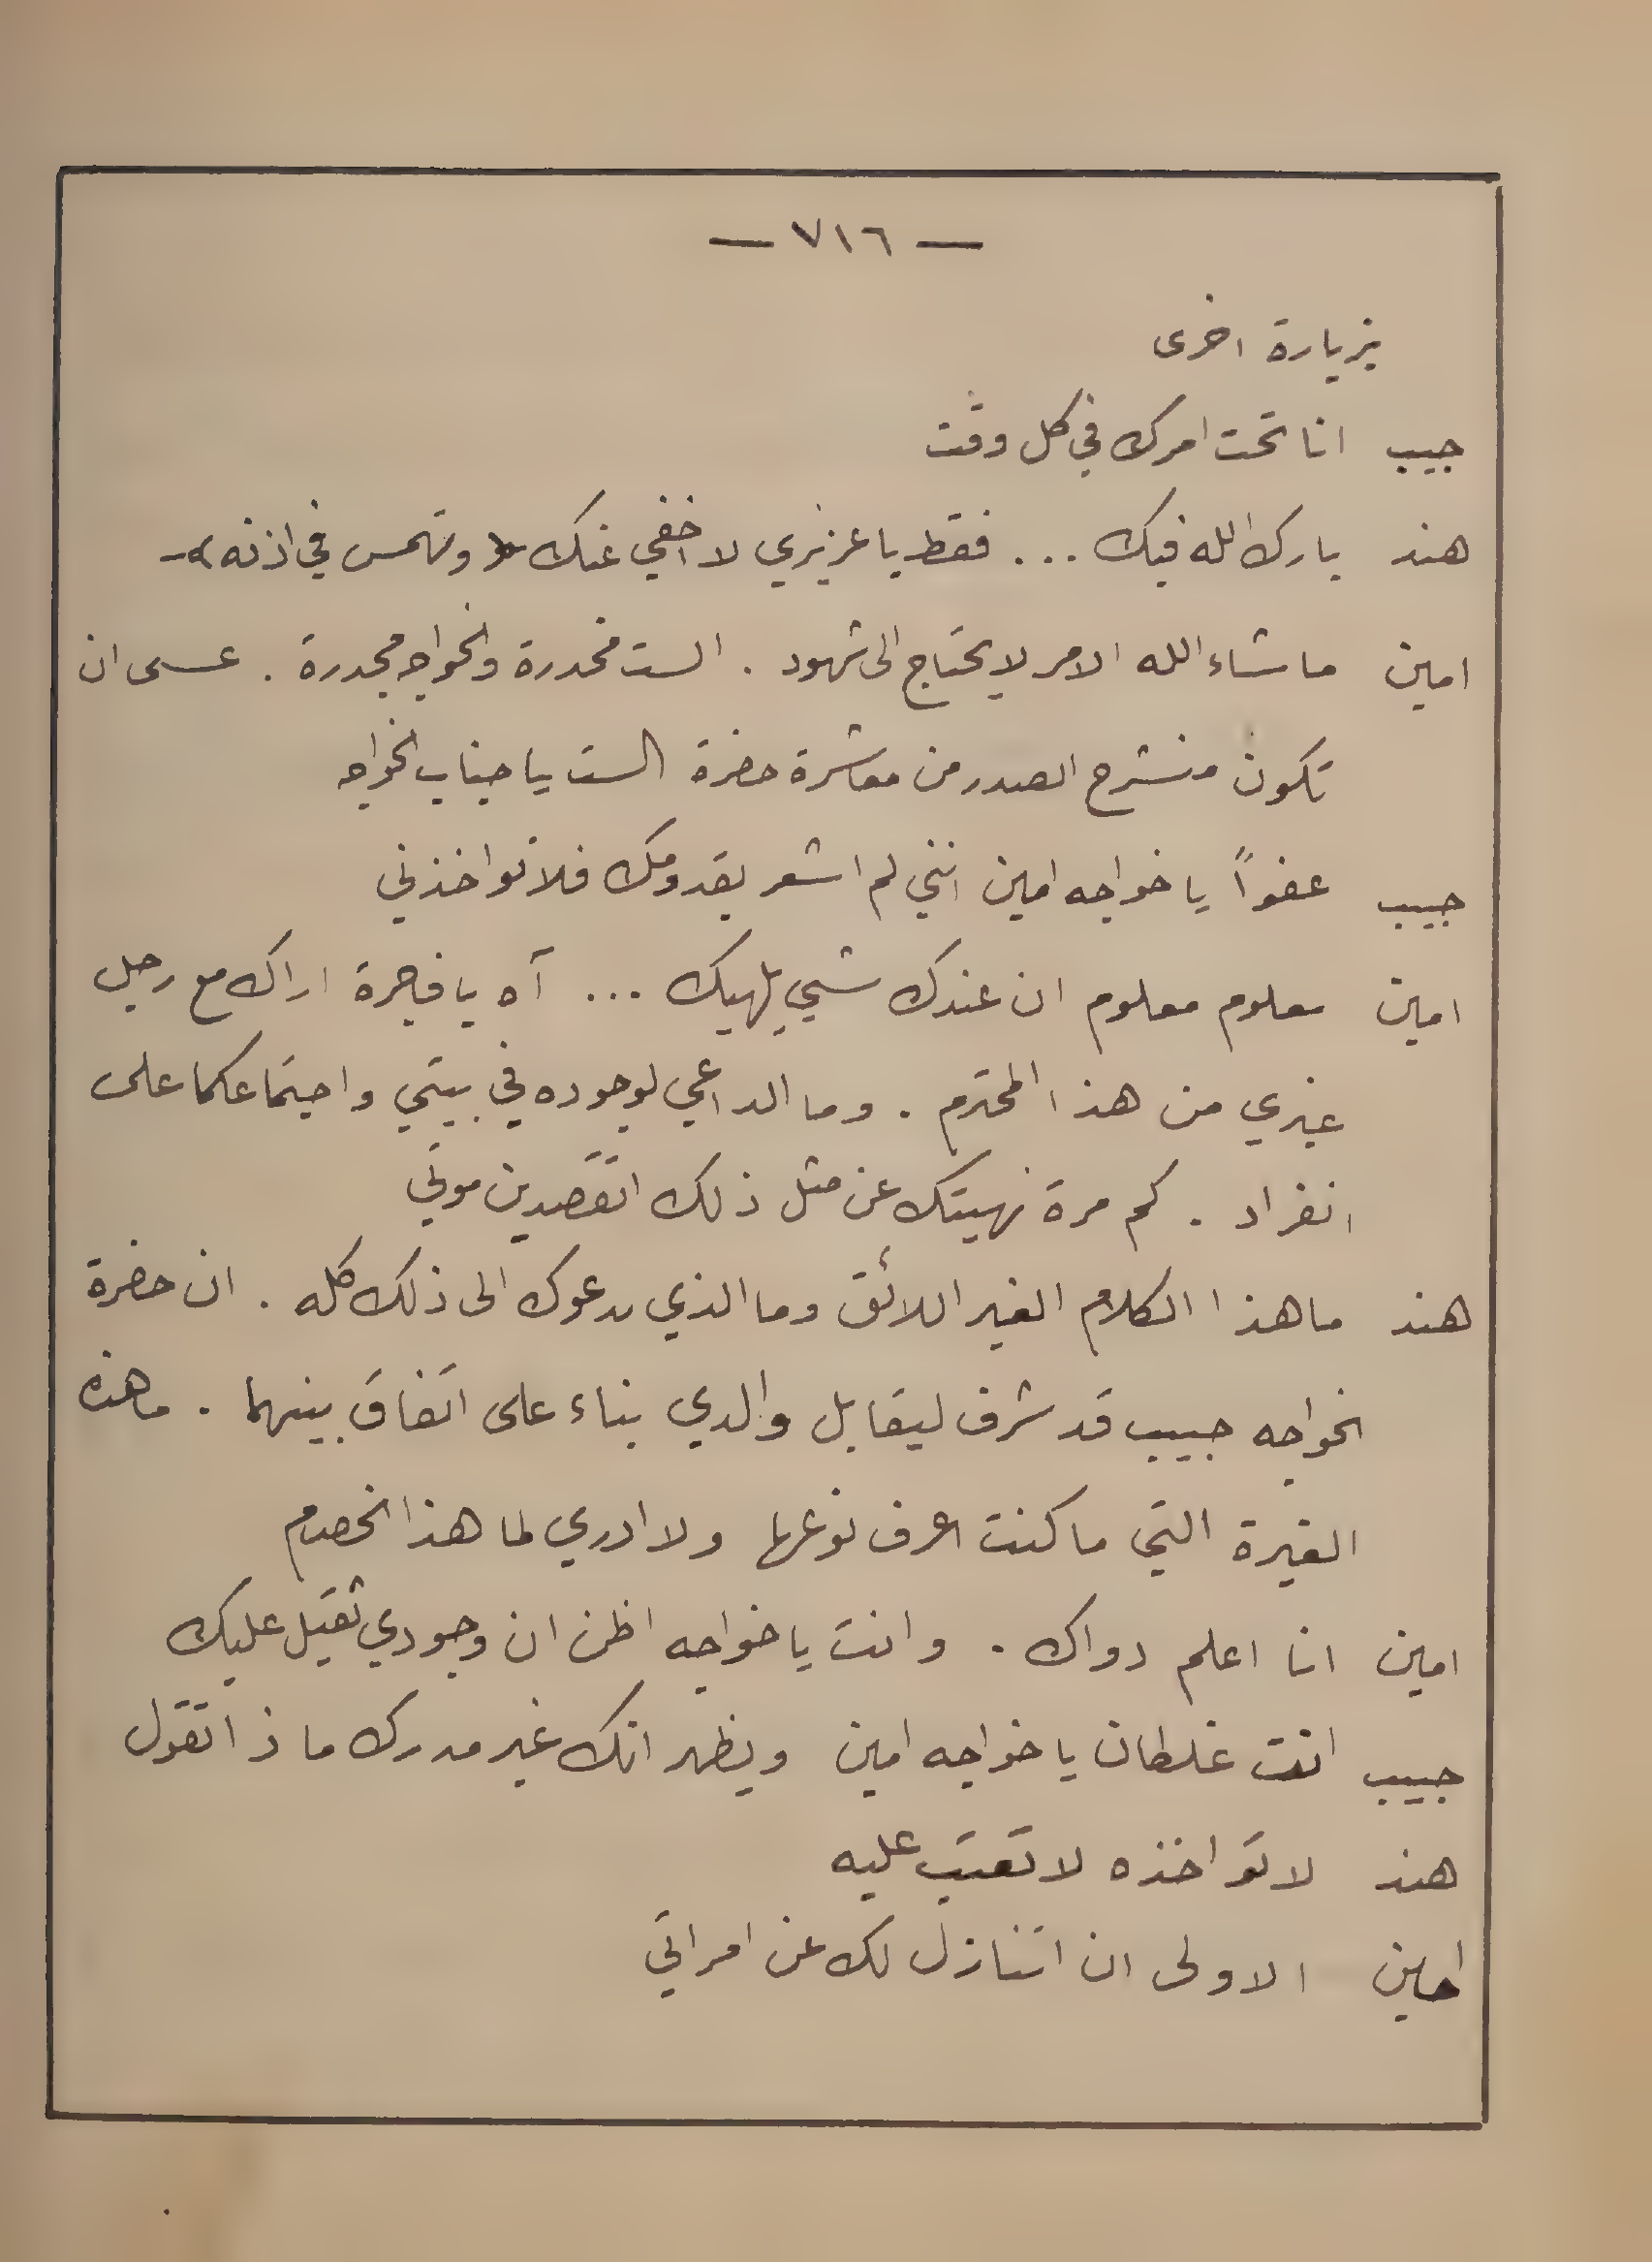 — ٧١٦ —
بزيارة اخرى
حبيب انا تحت امرك في كل وقت
هند بارك الله فيك ... فقط يا عزيزي لا اخفي عنك « وتهمس في اذنه »
امين ما شاء الله الامر لا يحتاج الى شهود . الست مخدرة والخواجه مجدرة . عسى ان
تكون منشرح الصدر من معاشرة حضرة الست يا جناب الخواجه
حبيب عفواً يا خواجه امين انني لم اشعر بقدومك فلا تواخذني
امين معلوم معلوم ان عندك شيء يلهيك ... آه يا فاجرة اراك مع رجل
غيري من هذا المحترم . وما الداعي لوجوده في بيتي واجتماعكما على
انفراد . كم مرة نهيتك عن مثل ذلك اتقصدين موتي
هند ما هذا الكلام الغير اللائق وما الذي يدعوك الى ذلك كله . ان حضرة
الخواجه حبيب قد شرف ليقابل والدي بناء على اتفاق بينهما . ما هذه
الغيرة التي ما كنت اعرف نوعها ولا ادري لما هذا الخصام
امين انا اعلم دواك . وانت يا خواجه اظن ان وجودي ثقيل عليك
حبيب انت غلطان يا خواجه امين ويظهر انك غير مدرك ماذا تقول
هند لا تواخذه لا تعتب عليه
امين الاولى ان اتنازل لك عن امراتي